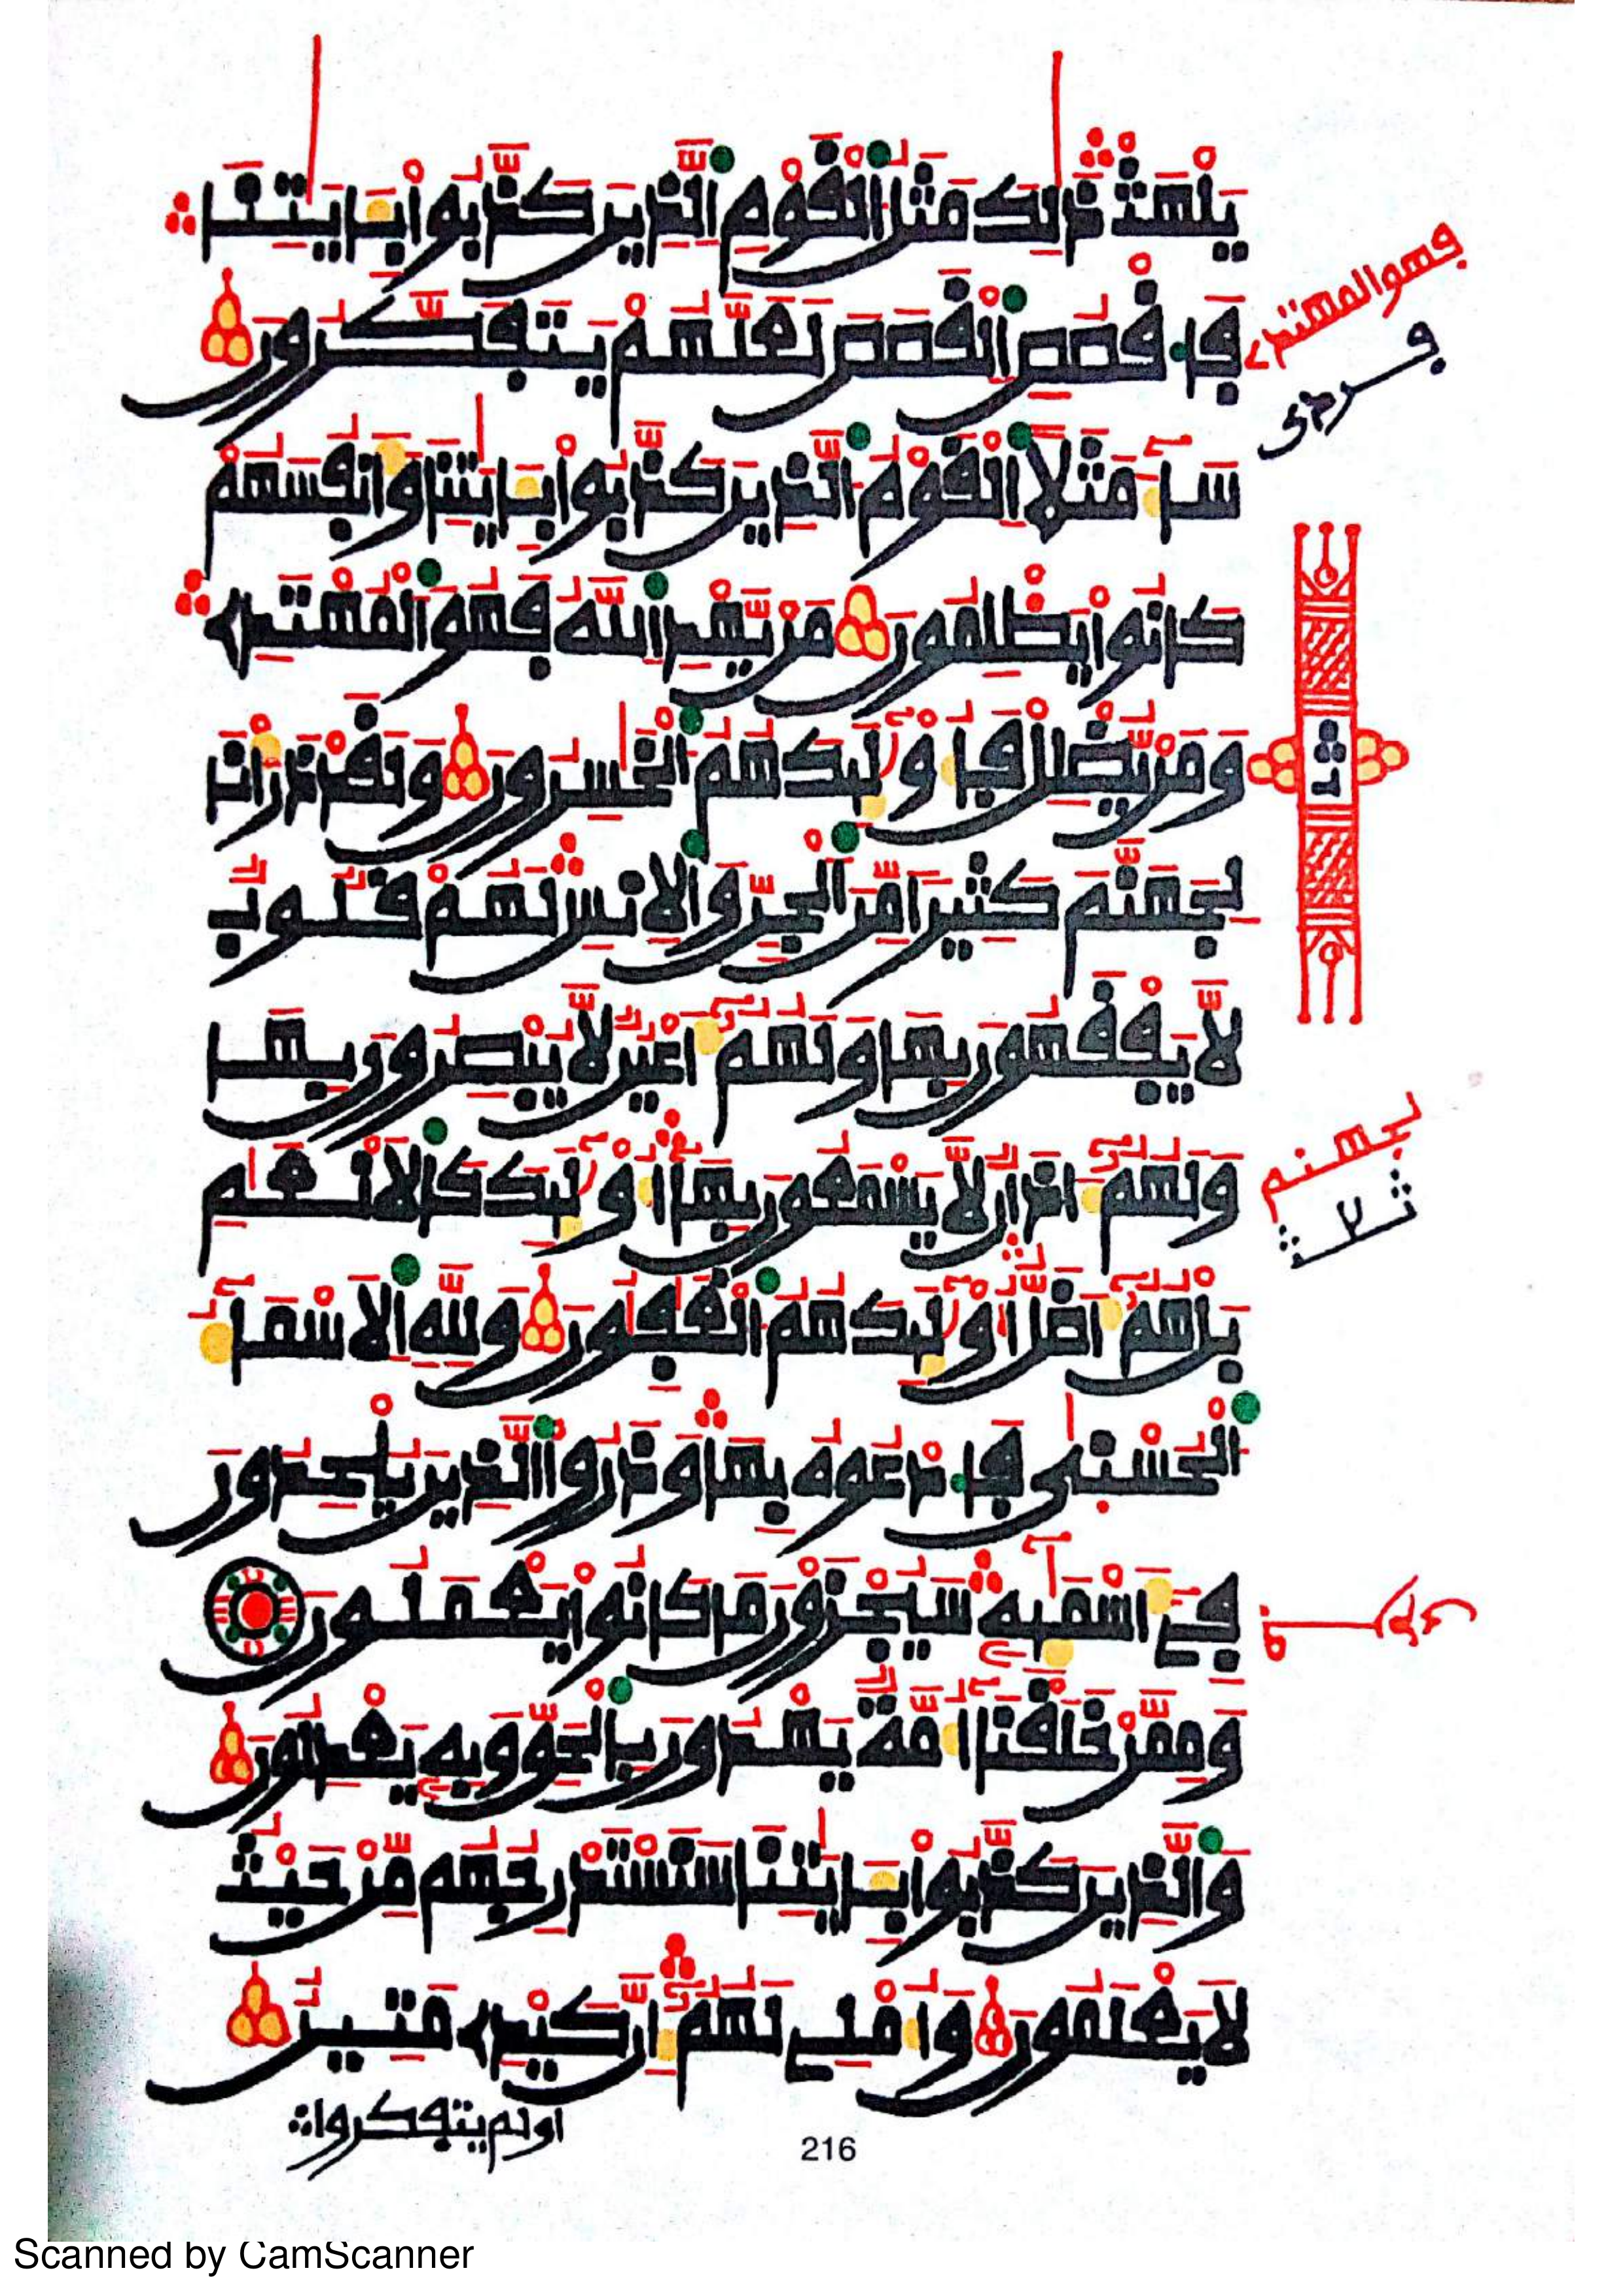 يَلْهَثْ ذَّٰلِكَ مَثَلُ اَ۬لْقَوْمِ اِ۬لذِينَ كَذَّبُواْ بِـَٔايَٰتِنَا
فَاقْصُصِ اِ۬لْقَصَصَ لَعَلَّهُمْ يَتَفَكَّرُونَ
سَآءَ مَثَلًا اَ۬لْقَوْمُ اُ۬لذِينَ كَذَّبُواْ بِـَٔايَٰتِنَا وَأَنفُسَهُمْ
كَانُواْ يَظْلِمُونَ مَنْ يَّهْدِ اِ۬للَّهُ فَهُوَ اَ۬لْمُهْتَدِے
وَمَنْ يُّضْلِلْ فَأُوْلَٰٓئِكَ هُمُ اُ۬لْخَٰسِرُونَ وَلَقَدْ ذَرَأْنَا
لِجَهَنَّمَ كَثِيرًا مِّنَ اَ۬لْجِنِّ وَالِانسِ لَهُمْ قُلُوبٌ
لَّا يَفْقَهُونَ بِهَا وَلَهُمُۥٓ أَعْيُنٌ لَّا يُبْصِرُونَ بِهَا
وَلَهُمُۥٓ ءَاذَانٌ لَّا يَسْمَعُونَ بِهَا أُوْلَٰٓئِكَ كَالَانْعَٰمِ
بَلْ هُمُۥٓ أَضَلُّ أُوْلَٰٓئِكَ هُمُ اُ۬لْغَٰفِلُونَ وَلِلهِ اِ۬لَاسْمَآءُ
اُ۬لْحُسْنَىٰ فَادْعُوهُ بِهَا وَذَرُواْ اُ۬لذِينَ يُلْحِدُونَ
فِےٓ أَسْمَٰٓئِهِۦ سَيُجْزَوْنَ مَا كَانُواْ يَعْمَلُونَ
وَمِمَّنْ خَلَقْنَآ أُمَّةٌ يَهْدُونَ بِالْحَقِّ وَبِهِۦ يَعْدِلُونَ
وَالذِينَ كَذَّبُواْ بِـَٔايَٰتِنَا سَنَسْتَدْرِجُهُم مِّنْ حَيْثُ
لَا يَعْلَمُونَ وَأُمْلِے لَهُمُۥٓ إِنَّ كَيْدِے مَتِينٌ
اولم يتفكروا
216
فهو المهتدے
لجهنم
Scanned by CamScanner